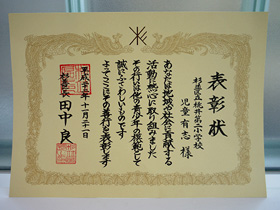 表彰状
杉並区立桃井第二小学校
児童有志 様
あなたは地域の社会に貢献する
活動に熱心に取り組みました
その行いは他の青少年の模範として
誠にふさわしいものです
よってここにその善行を表彰します
平成二十三年十一月二十一日
杉並区長 田中 良